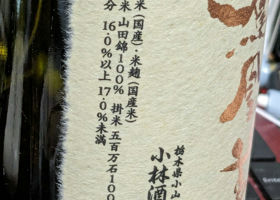 鳳凰
栃木県小山
小林酒
米(国産)・米麹(国産米)
米山田錦100% 掛米五百万石100
分 16.0%以上 17.0%未満